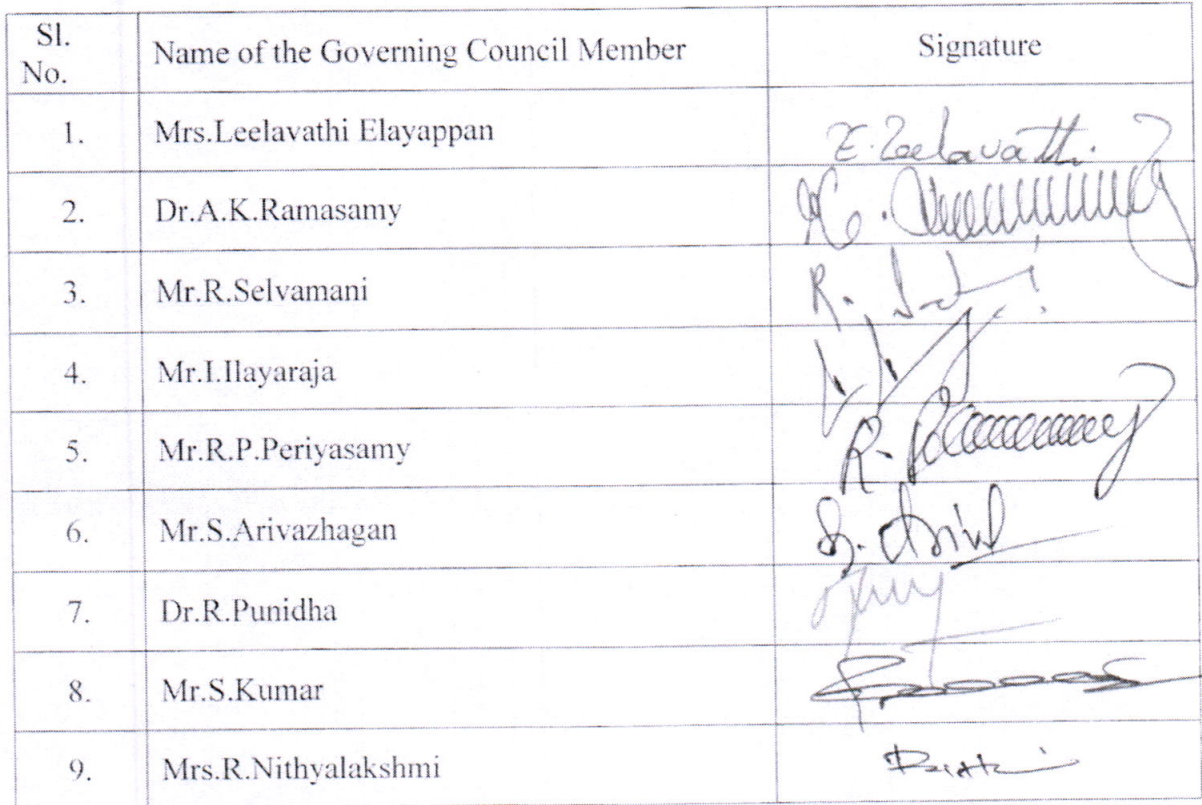 Sl.
No.
Name of the Governing Council Member
Signature
1. Mrs.Leelavathi Elayappan E.Leelavathi.
2. Dr.A.K.Ramasamy
3. Mr.R.Selvamani R.
4. Mr.I.Ilayaraja
5. Mr.R.P.Periyasamy R.
6. Mr.S.Arivazhagan S.
7. Dr.R.Punidha
8. Mr.S.Kumar
9. Mrs.R.Nithyalakshmi